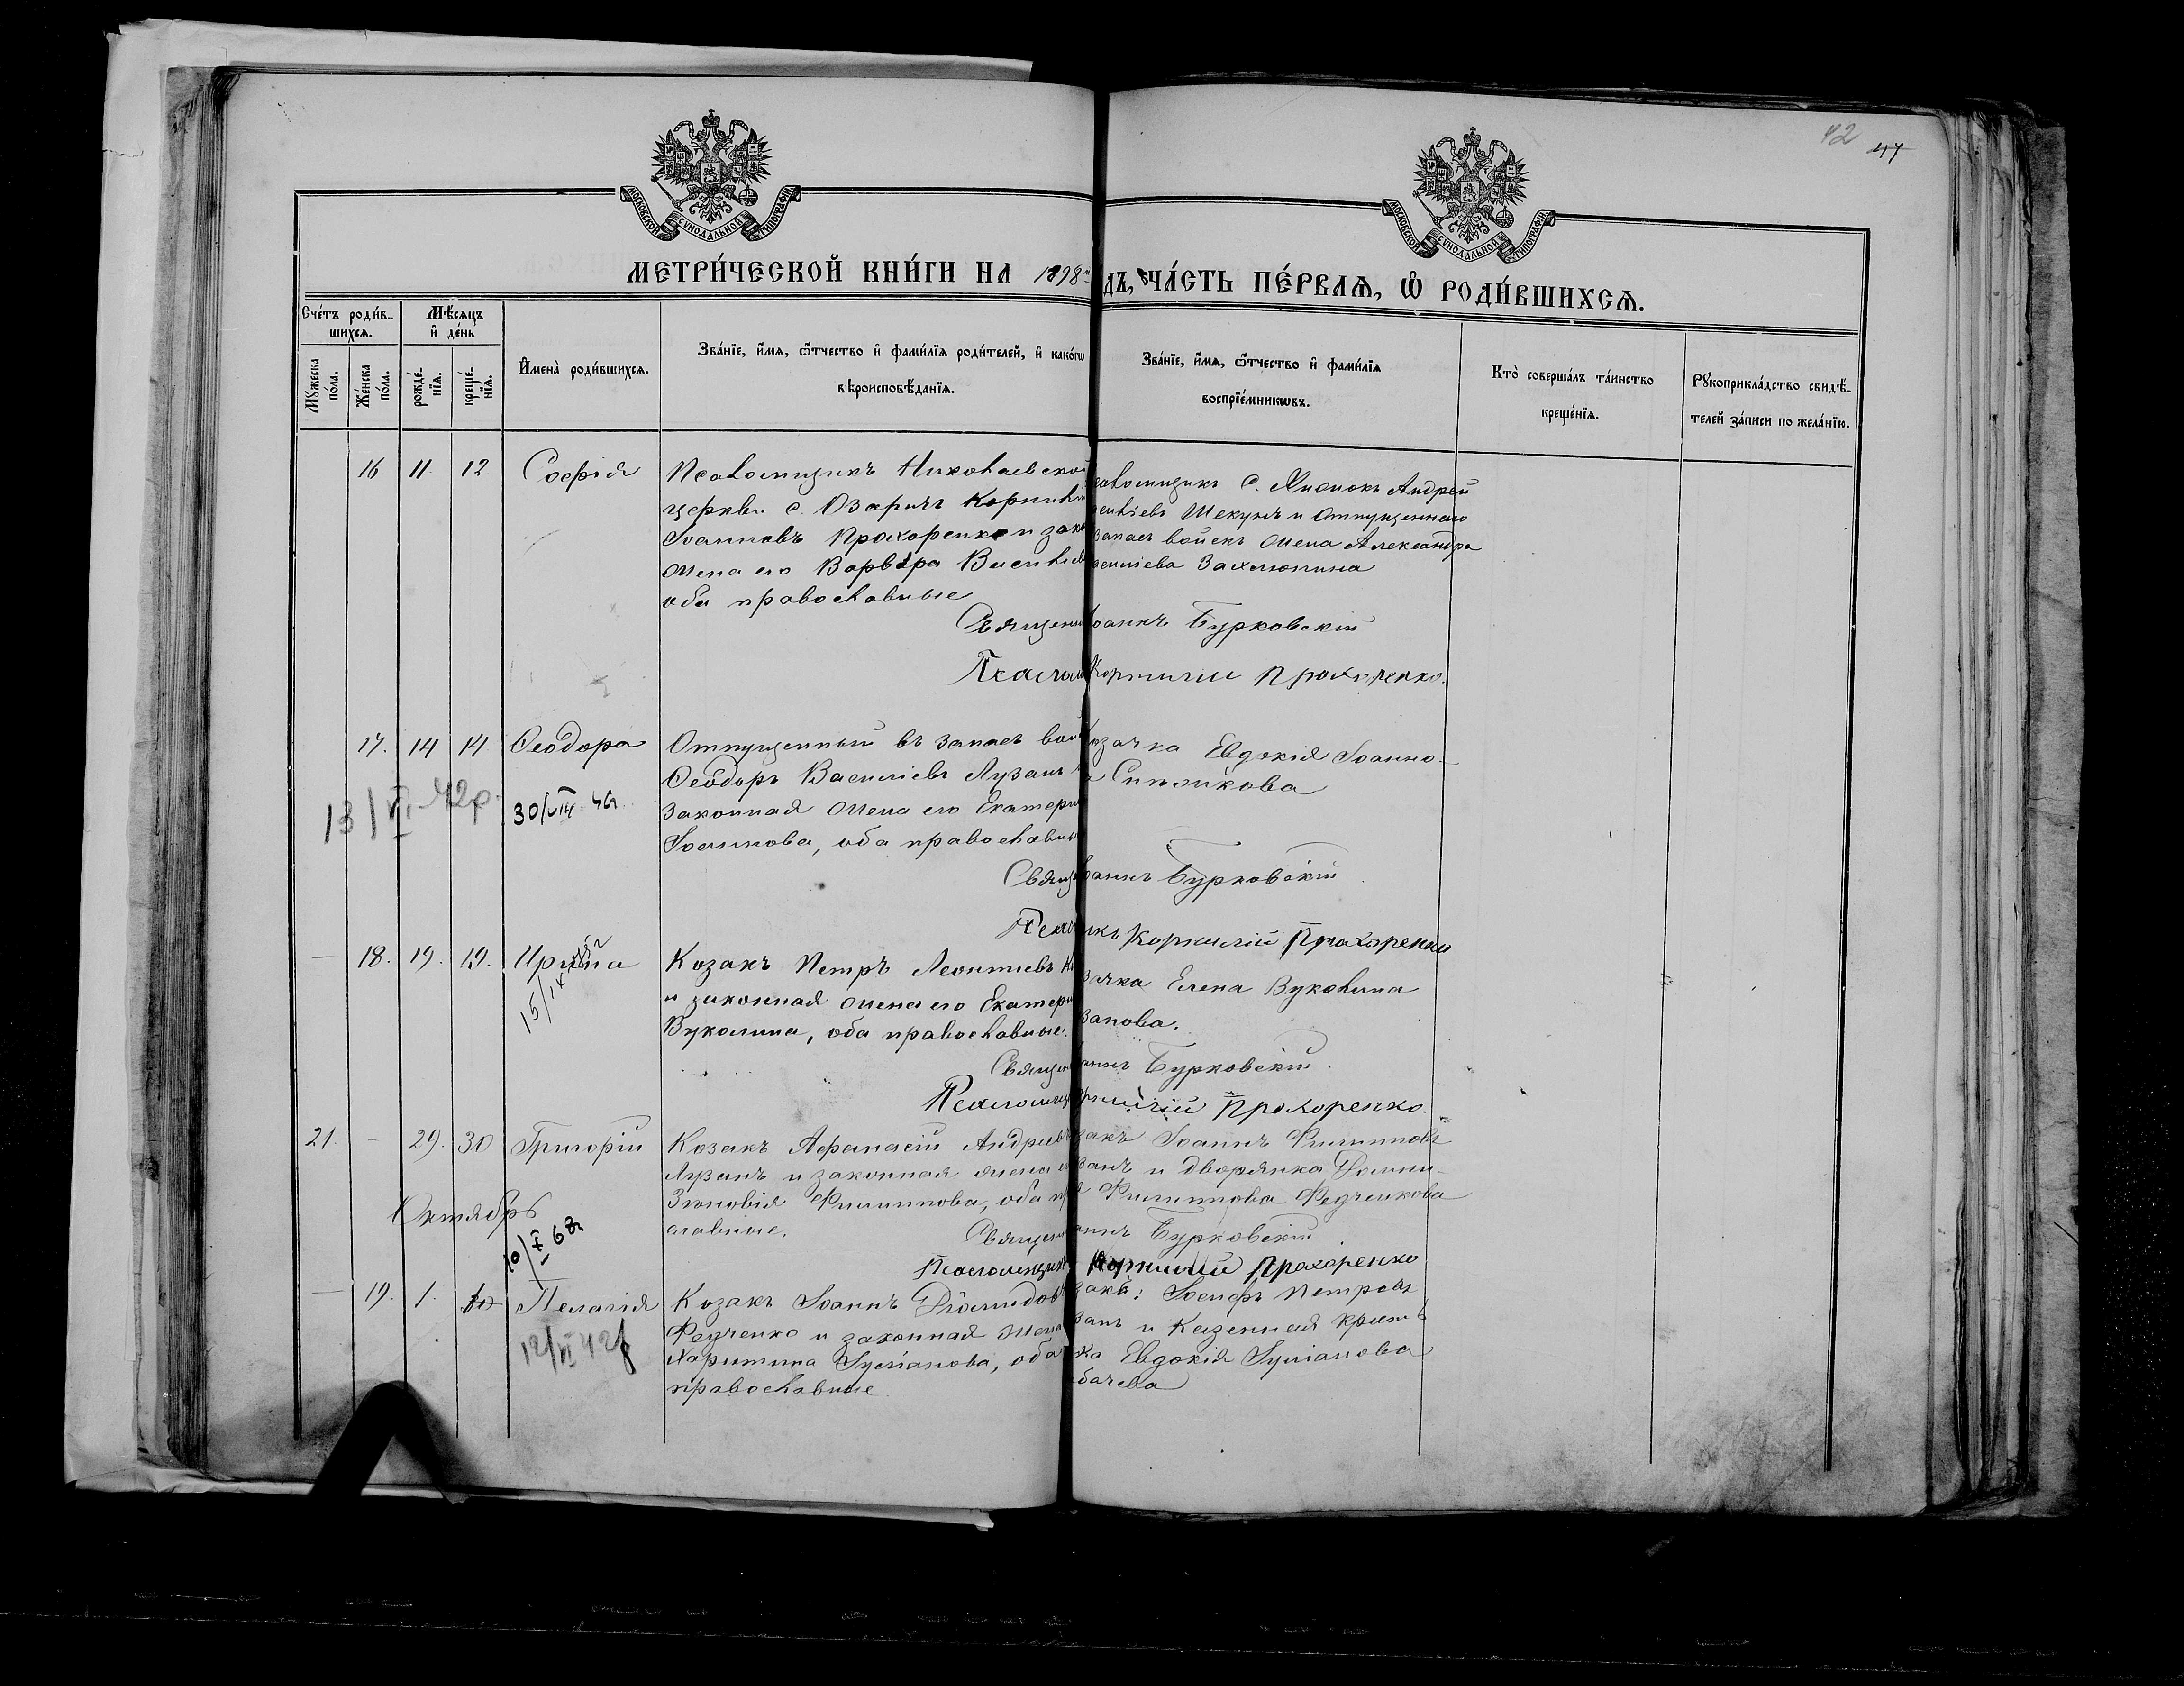 42 47
МОСКОВСКОЙ СѴНОДАЛЬНОЙ ТИПОГРАФІИ
МОСКОВСКОЙ СѴНОДАЛЬНОЙ ТИПОГРАФІИ
МЕТРИ́ЧЕСКОЙ КНИ́ГИ НА 1898
ДЪ, ЧА́СТЬ ПЕ́РВАѦ, Ѡ҆ РОДИ́ВШИХСѦ.
Сче́тъ роди́в-
шихсѧ.
Мѣ́сѧцъ
и҆ де́нь
Мꙋ́жеска
по́ла.
Же́нска
по́ла.
рожде́-
нїѧ.
креще́-
нїѧ.
И҆мена̀ роди́вшихсѧ.
Зва́нїе, и҆́мѧ, ѻ҆́тчество и҆ фами́лїѧ роди́телей, и҆ како́гѡ
вѣроисповѣ́данїѧ.
Зва́нїе, и҆́мѧ, ѻ҆́тчество и҆ фами́лїѧ
воспрїе́мникѡвъ.
Кто̀ соверша́лъ та́инство
креще́нїѧ.
Рꙋкоприкла́дство свидѣ́-
телей за́писи по жела́нїю.
16 11. 12 Софія
Псаломщикъ Николаевской
церкви с. Озаричъ Корнилій
Іоанновъ Прохоренко и зако
жена его Варвара Васильев
оба православные
аломщикъ с. Андрей
Шекунъ и отпущеннаго
запасъ войскъ жена Александра
Священн оаннъ Бурковскій
Псалом Корнилій Прохоренко.
17. 14 14 Ѳеодора
13/VI-42р.
30/VIII 46
Отпущенный въ запасъ вой
Ѳеодоръ Василіевъ Лузанъ
законная жена его Екатери
Іоаннова, оба православны
козачка Евдокія Іоанно-
ва
Свящ оаннъ Бурковскій
Псал икъ Корнилій Прохоренко
— 18. 19. 19. Ирина
15/IX
Козакъ Петръ Леонтіевъ
и законная жена его Екатери
Вуколина, оба православные.
зачка Елена Вуколина
занова.
Священ аннъ Бурковскій.
Псаломщ рнилій Прохоренко.
21. — 29. 30 Григорій
Козакъ Аѳанасій Андреевъ
Лузанъ и законная жена е
Зиновія Филиппова, оба пр
славные.
закъ Іоаннъ Филипповъ
занъ и дворянка Домни-
я Филиппова Федченкова
Священ аннъ Бурковскій
Псаломщикъ Корнилій Прохоренко
Октябрь
10/X 62
— 19. 1. Пелагія
12/VI 42
Козакъ Іоаннъ Діомидов
Федченко и законная жена
Харитина Іуліанова, оба
православные
закъ: Іосифъ Петровъ
занъ и казенная крест
ка Евдокія Іуліанова
бачева